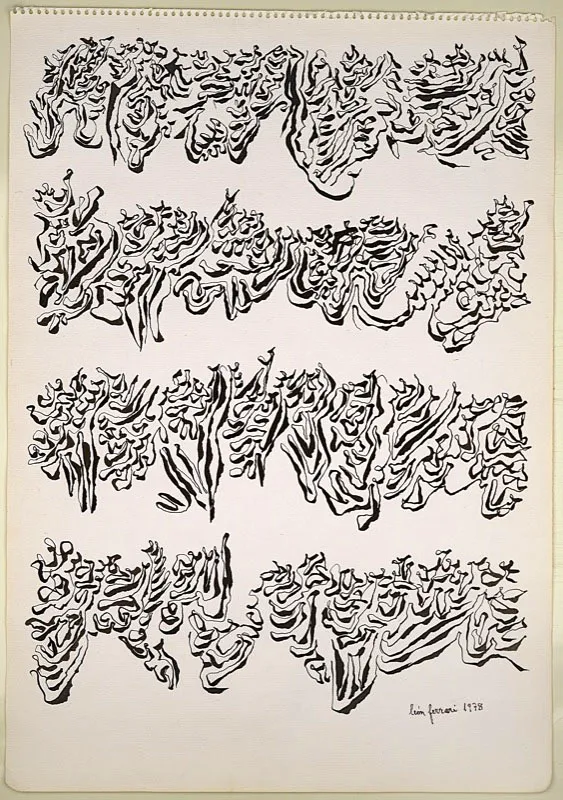 león ferrari 1978